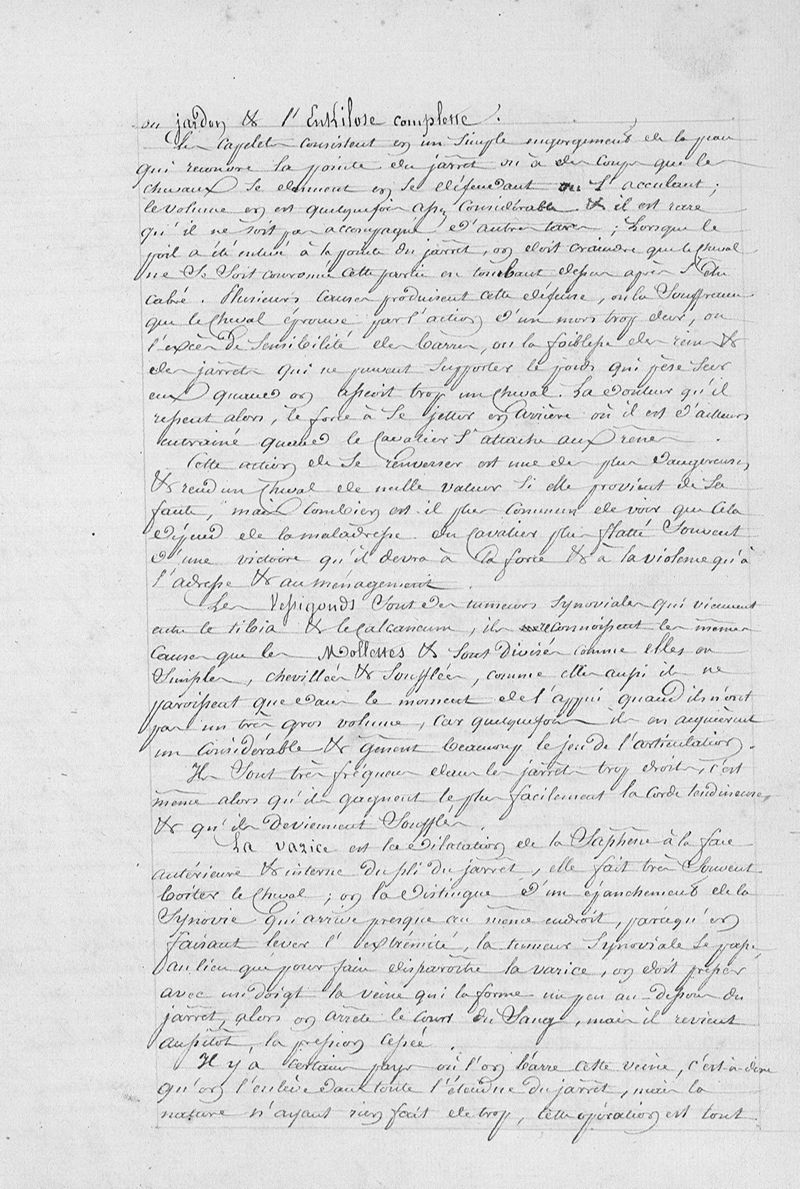 ou jardon & l'Enkilose complette.
Le capelet consistent en un simple engorgement de la peau
qui recouvre la pointe du jarret ou à des coups que les
chevaux se donnent en se défendant ou s'acculant ;
le volume en est quelquefois assez considérable & il est rare
qu'il ne soit pas accompagné d'autres tares ; Lorsque le
poil a été enlevé à la pointe du jarret, on doit craindre que le Cheval
ne se soit couronné cette partie en tombant dessus après s'être
cabré. Plusieurs causes produisent cette défense, ou la Souffrance
que le Cheval éprouve par l'action d'un mors trop dur, ou
l'excès de Sensibilité des barres, ou la faiblesse des reins &
des jarrets qui ne peuvent supporter le poids qui pèse sur
eux quand on asseoit trop un Cheval. La douleur qu'il
ressent alors, le force à se jetter en arrière où il est d'ailleurs
entrainé quand le Cavalier s'attache aux rênes.
Cette action de se renverser est une des plus dangereuses,
& rend un Cheval de nulle valeur si elle provient de sa
faute, mais combien est-il plus commun de voir que cela
dépend de la maladresse du Cavalier plus flatté Souvent
d'une victoire qu'il devra à la force & à la violence qu'à
l'adresse & au ménagement.
Les Vessigonds Sont des tumeurs Synoviales qui viennent
entre le tibia & le Calcaneum, ils connoissent les mêmes
Causes que les Mollettes & Sont Divisés comme elles en
Simples, chevillés & Soufflés, comme elles aussi ils ne
paroissent que dans le moment de l'appui quand ils n'ont
pas un très gros volume, car quelquefois ils en acquièrent
un Considérable & gênent beaucoup le jeu de l'articulation.
Ils Sont très fréquens dans les jarrets trop droits, c'est
même alors qu'ils gagnent le plus facilement la Corde tendineuse
& qu'ils Deviennent Soufflés.
La varice est la dilatation de la Saphène à la face
antérieure & interne du pli du jarret, elle fait très Souvent
boiter le Cheval ; on la Distingue d'un épanchement de la
Synovie qui arrive presque au même endroit, parcequ'en
faisant lever l'extrémité, la tumeur Synoviale Se passe,
au lieu que pour faire disparoître la varice, on doit presser
avec un doigt la veine qui la forme un peu au-dessous du
jarret, alors on arrête le cours du Sang, mais il revient
aussitôt la pression cessée.
Il y a certains pays où l'on barre cette veine, c'est à dire
qu'on l'enlève dans toute l'étendue du jarret, mais la
nature n'ayant rien fait de trop, cette opération est tout